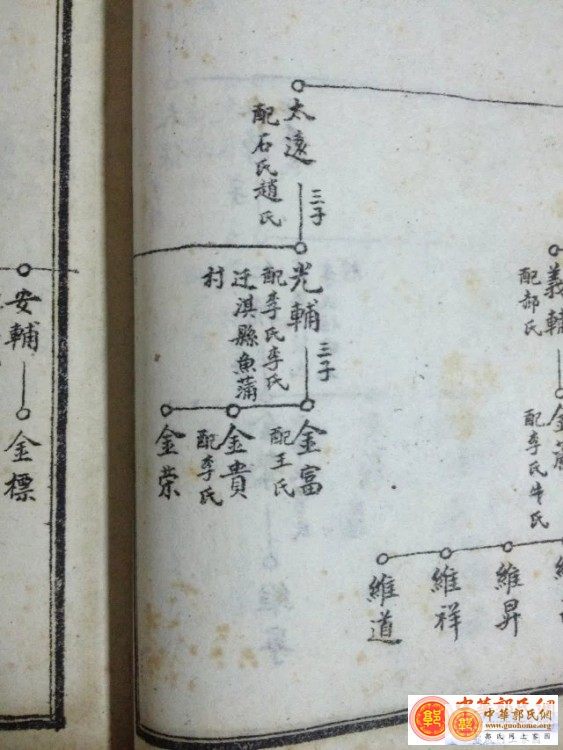 義輔
配郝氏
金
配李氏牛氏
維昇
維祥
維道
太遠
配石氏趙氏
三子
光輔
配李氏李氏
迁淇縣魚蒲
村
三子
金富
配王氏
金貴
配李氏
金荣
安輔
金標
中華郭氏網
www.guohome.org
郭氏网上家园